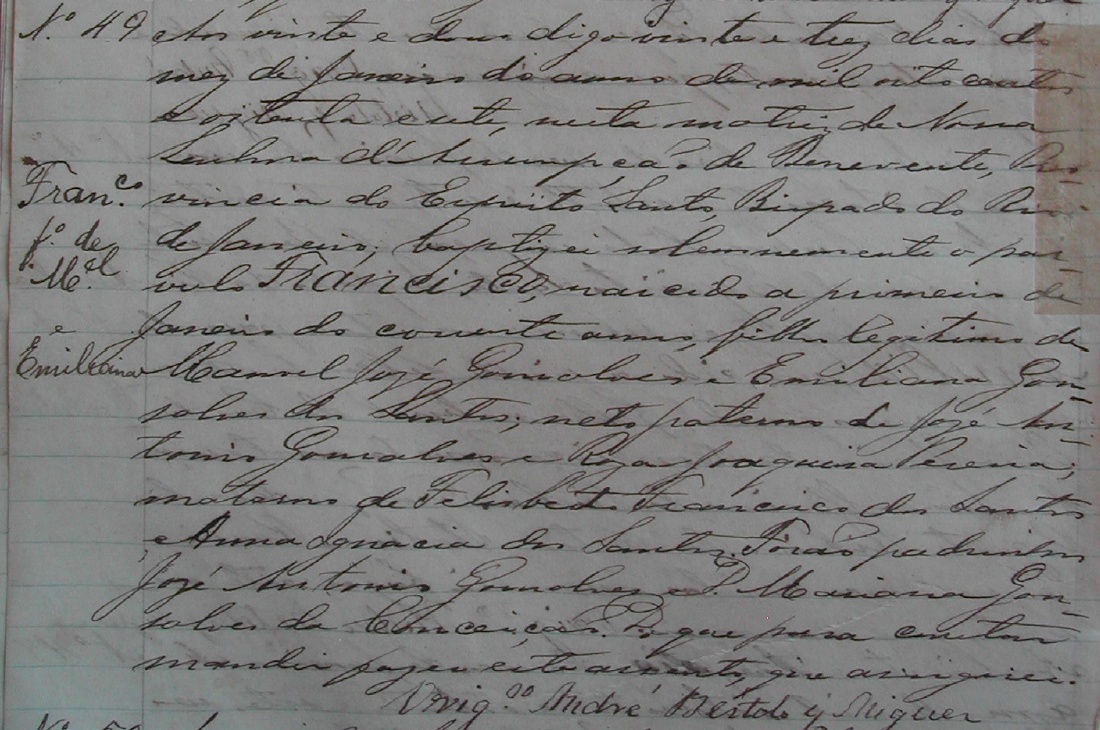 Nº 49 Aos vinte e dous digo vinte e trez dias do
mez de Janeiro do anno de mil oito centos
e oitenta e sete, nesta matriz de Nossa
Senhora d'Assumpção de Benevente, Pro-
Fran.co vincia do Espirito Santo, Bispado do Rio
fº de de Janeiro, baptizei solemnemente o par-
M.el vulo Francisco, naicido a primeiro de
e Janeiro do corrente anno, filho legitimo de
Emiliana Manoel José Gonsalves e Emiliana Gon-
salves dos Santos; neto paterno de José An-
tonio Gonsalves e Roza Joaquina Pereira;
materno de Felisberto Francisco dos Santos
e Anna Ignacia dos Santos. Forão padrinhos
José Antonio Gonsalves e D. Mariana Gon-
salves da Conceição. Do que para constar
mandei fazer este assento, que assignei.
Vrigº André Bertolo y Miguer